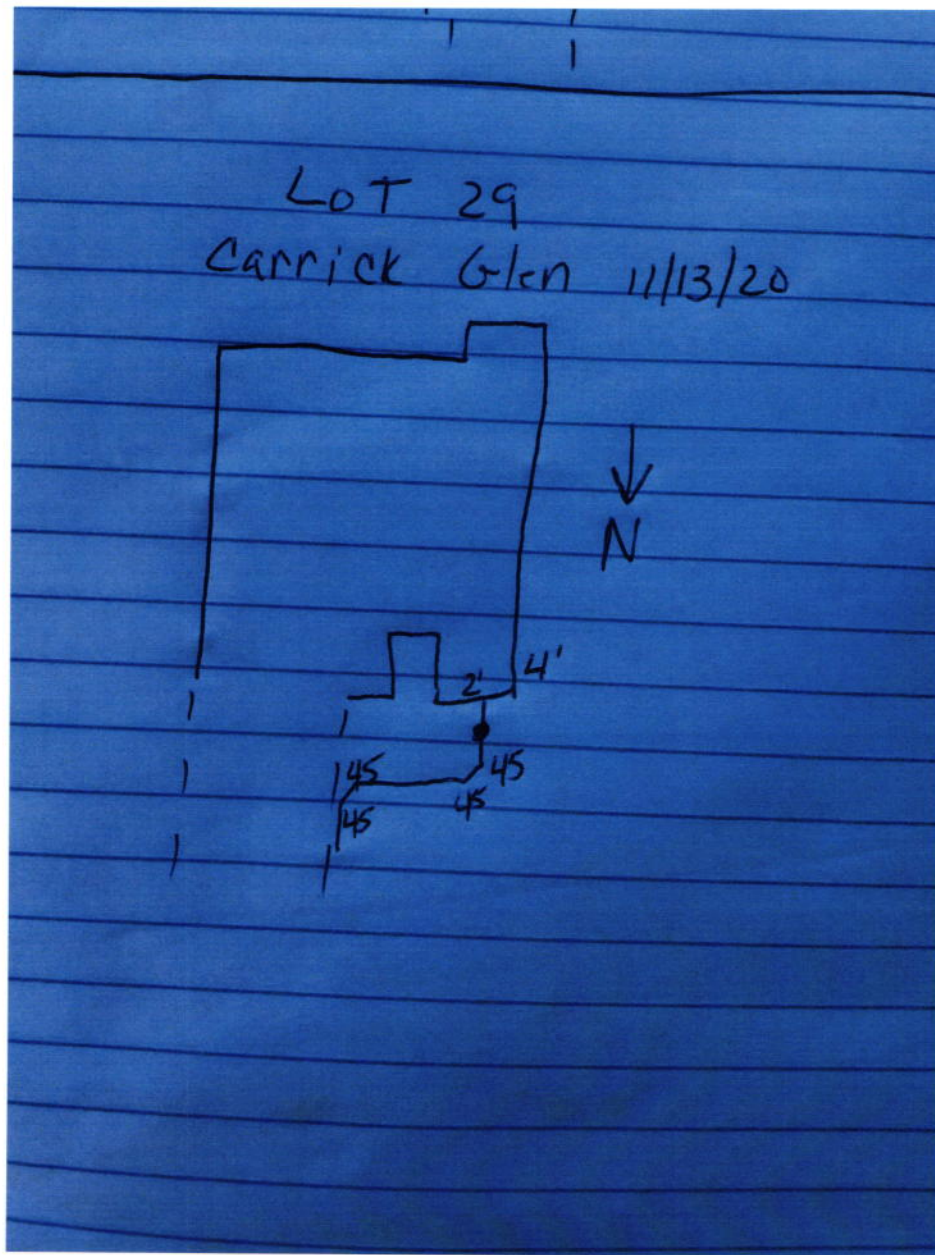 LOT 29
Carrick Glen 11/13/20
N
2' 4'
45 45
45 45